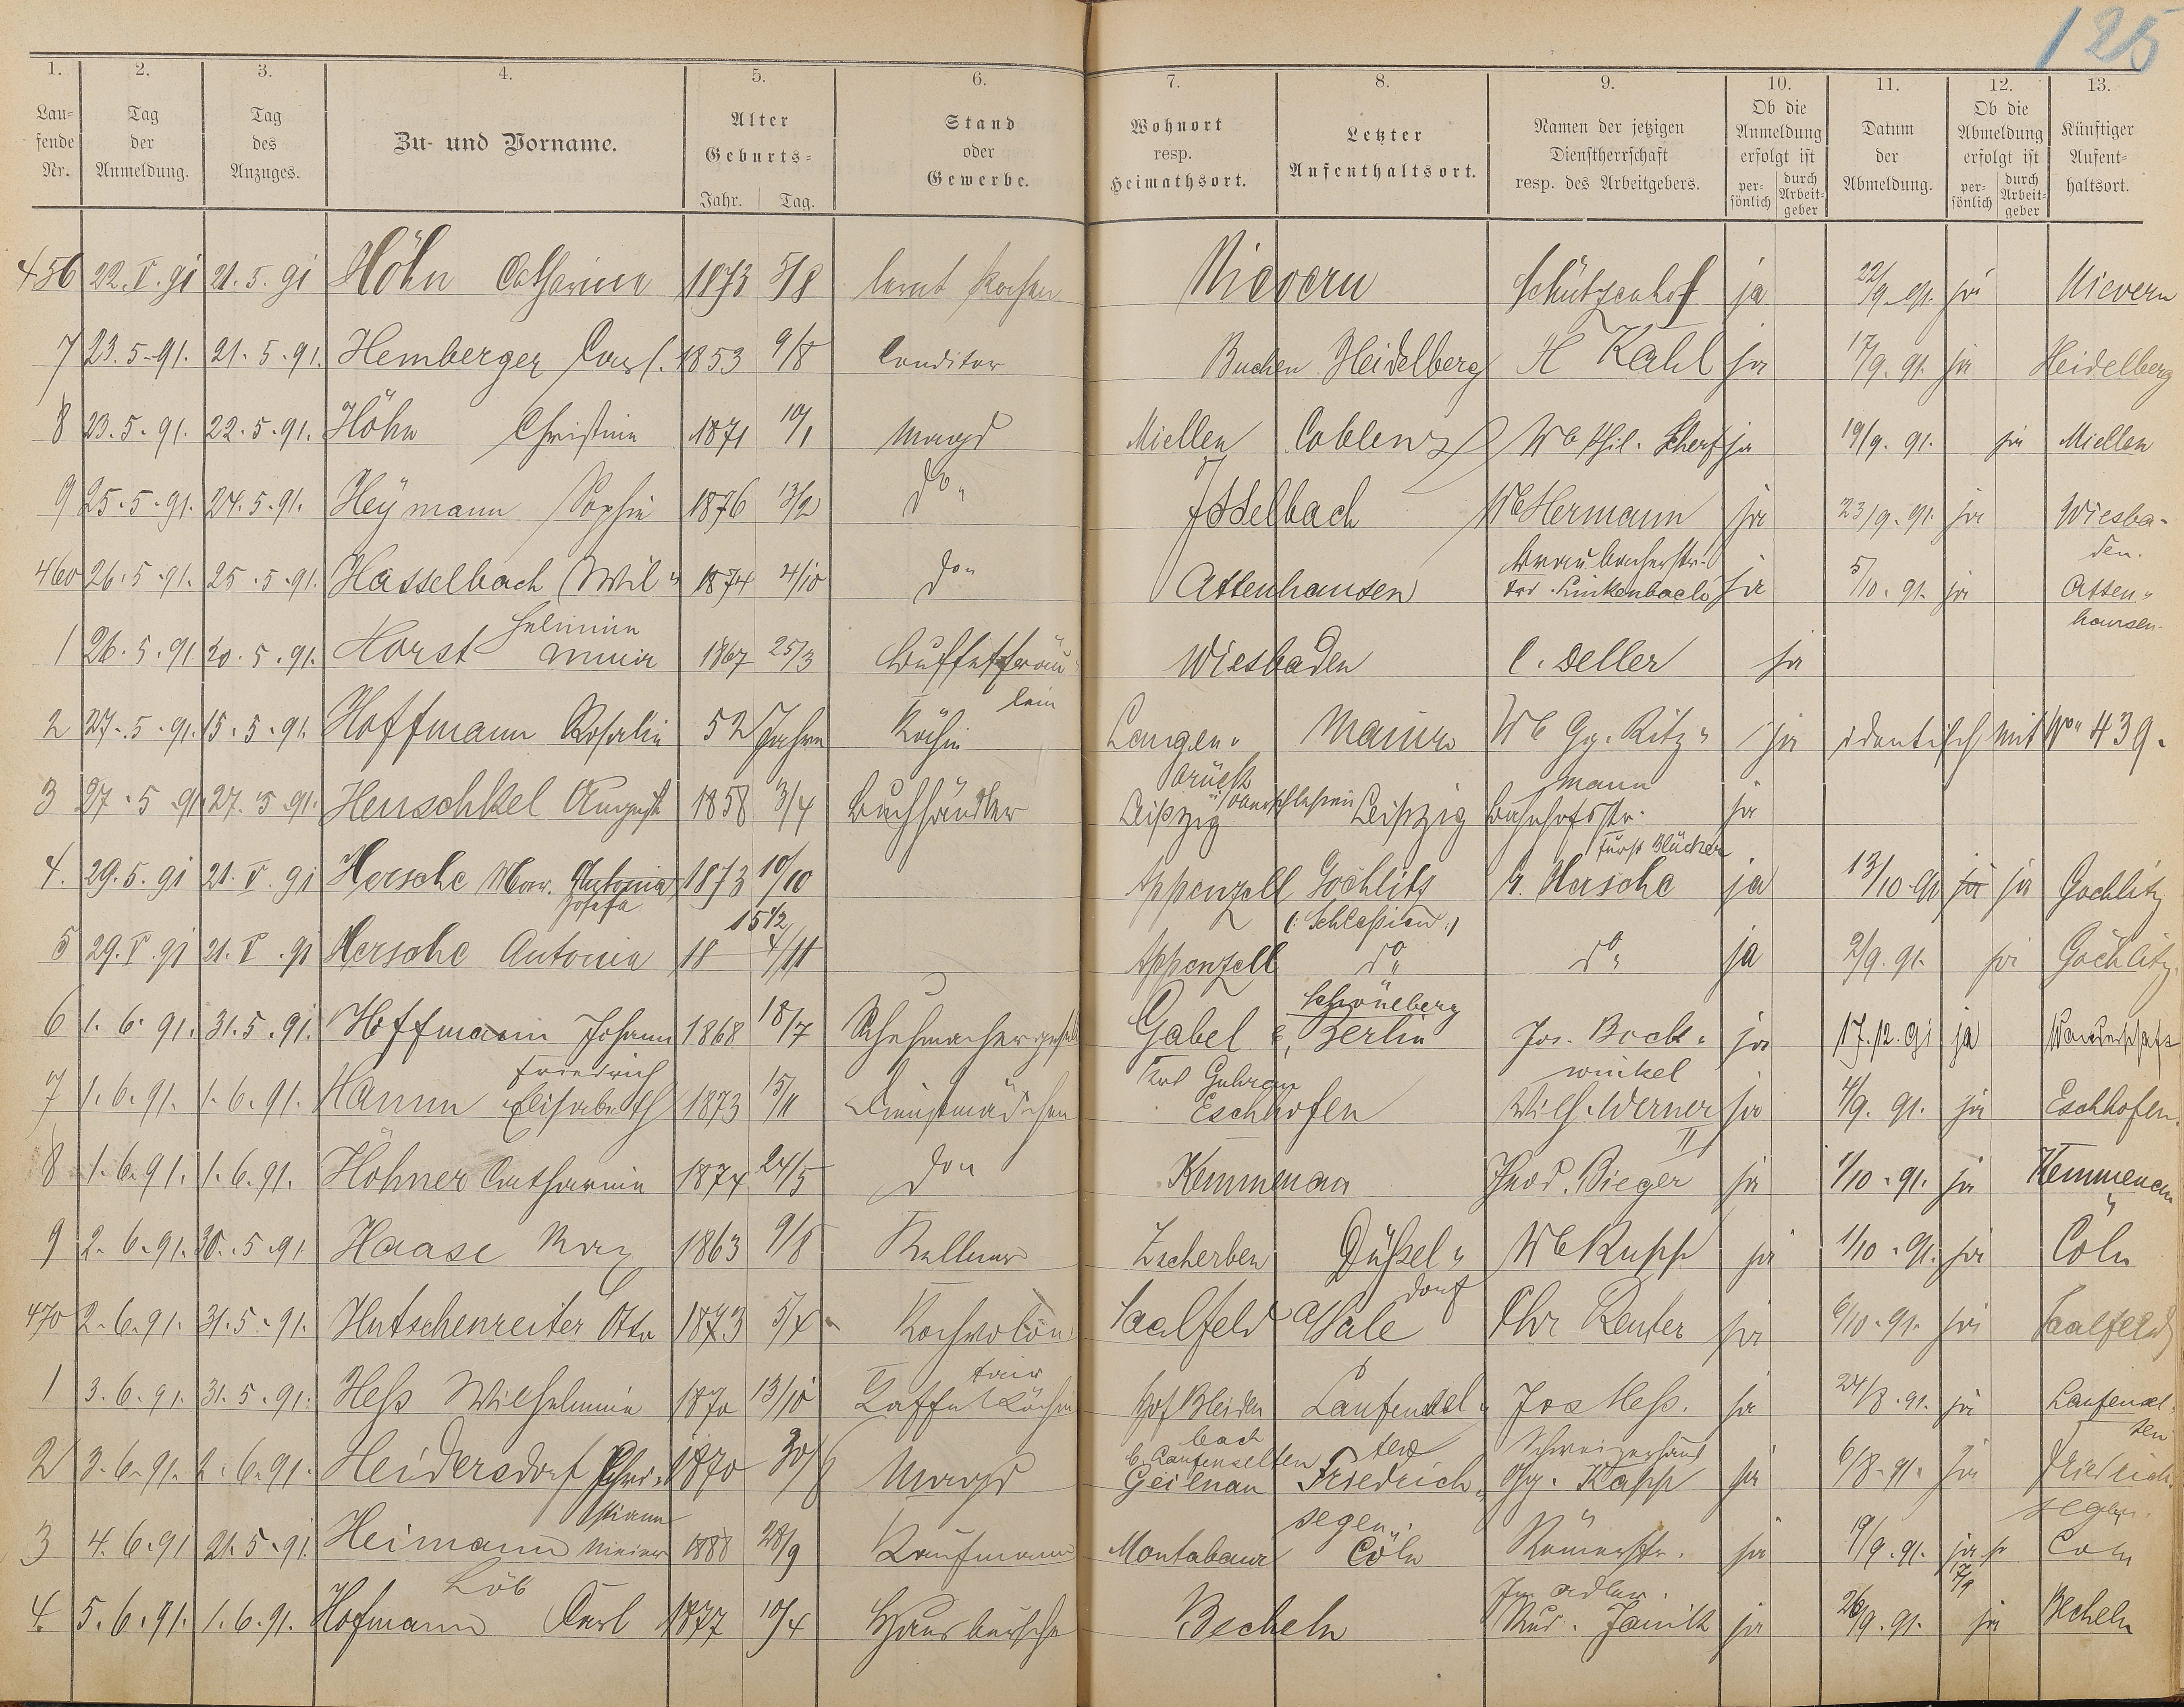 125
1. 2. 3. 4. 5. 6. 7. 8. 9. 10. 11. 12. 13.
Lau=fende Nr. Tag der Anmeldung. Tag des Anzuges. Zu- und Vorname. Alter Geburts= Jahr. Tag. Stand oder Gewerbe. Wohnort resp. Heimathsort. Letzter Aufenthaltsort. Namen der jetzigen Dienstherrschaft resp. des Arbeitgebers. Ob die Anmeldung erfolgt ist per=sönlich durch Arbeit=geber Datum der Abmeldung. Ob die Abmeldung erfolgt ist per=sönlich durch Arbeit=geber Künftiger Aufent=haltsort.
456 22.V.91 21.5.91 Höhn Catharina 1873 5/8 lernt Kochen Nievern Schützenhof ja 22/9.91. ja Nievern
7 23.5.91. 21.5.91. Hemberger Carl. 1853 9/8 Conditor Buchen Heidelberg H Kahl ja 17/9.91. ja Heidelberg
8 23.5.91. 22.5.91. Höhn Christine 1871 10/1 Magd Miellen Coblenz Wb Phil. Scherf ja 19/9.91. ja Miellen
9 25.5.91. 24.5.91. Heymann Sophie 1876 13/2 do" Isselbach Wb Hermann ja 23/9.91. ja Wiesba-
den.
460 26.5.91. 25.5.91. Hasselbach Wil" 1874 4/10 do" Attenhausen Linkenbach ja 5/10.91. ja Atten"
helmine hausen.
1 26.5.91 20.5.91. Horst 1867 25/3 Buffetfräu Wiesbaden C. Deller ja
lein
2 27.5.91. 15.5.91. Hoffmann Rosalie 52 Jahre Köchin Langen" Mainz Wb Gg. Ritz" ja identisch mit No 439.
brück mann
3 27.5.91. 27.5.91. Henschkel August 1858 3/4 Buchhändler Leipzig Leipzig Bahnhofstr. ja
Fürst Blücher
4. 29.5.91 21.V.91 Hersche Mar. Antonia 1873 10/10 Appenzell Göchlitz Hersche ja 13/10 91 ja ja Gochlitz
Josefa (: Schlesien :)
15 1/2
5 29.V.91 21.V.91 Hersche Antonia 18 4/11 Appenzell do" do" ja 2/9.91. ja Göchlitz.
Schöneberg
6 1.6.91. 31.5.91. Hoffmann Johann 1868 18/7 Schuhmachergesell Gabel b, Berlin Jos. Bock" ja 17.12.91 ja Wanderschaft
Friedrich winkel
7 1.6.91. 1.6.91. Hamm Elisabeth 1873 15/11 Dienstmädchen Eschhofen Wilh. Werner ja 4/9.91. ja Eschhofen.
II
8 1.6.91. 1.6.91. Höhner Catharina 1874 24/5 do" Kemmenau Theod. Bieger ja 1/10.91. ja Kemmenau
9 2.6.91. 30.5.91 Haase Max 1863 9/8 Kellner Zscherben Düssel" Wb Rupp ja 1/10.91. ja Cöln
dorf
470 2.6.91. 31.5.91. Hutschenreiter Otto 1873 5/4 Kochvolon Saalfeld a/Sale Chr Reuter ja 6/10.91. ja Saalfeld
tair
1 3.6.91. 31.5.91. Heß Wilhelmine 1870 13/10 Kaffeeköchin Hof Bleiden Laufensel" Jos Heß. ja 24/8.91. ja Laufensel"
bach ten ten
b. Laufenselten Schweizerhaus
2 3.6.91. 2.6.91. Heidersdorf Chri" 1870 30/8 Magd Geilnau Friedrich" Gg. Kapp ja 6/8.91. ja Friedrich"
stiane segen. segen.
3 4.6.91 21.5.91. Heimann Meier 1888 28/9 Kaufmann Montabaur Cöln Römerstr. ja 19/9.91. ja Coln
Löb Im Adler. 17/9
4. 5.6.91. 1.6.91. Hofmann Carl 1877 10/4 Hausbursche Becheln Rud. Janitt ja 26/9.91. ja Becheln